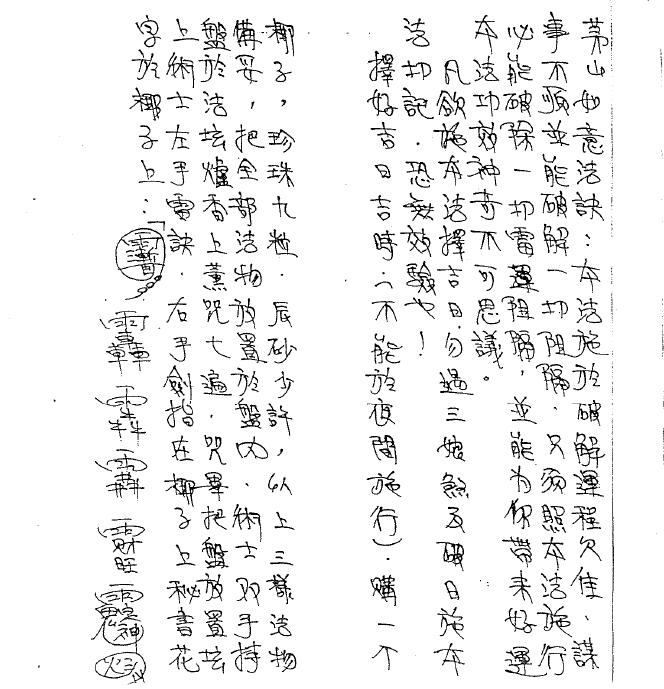 茅山如意法訣：本法施於破解運程欠佳．謀
事不順並能破解一切阻隔．只須照本法施行
必能破除一切雷運阻隔，並能為你帶来好運
本法功效神奇不可思議。
凡欲施本法擇吉日勿過三娘煞及破日施本
法切記．恐無效驗也！
擇好吉日吉時（不能於夜間施行）．購一个
椰子，珍珠九粒．辰砂少許，以上三樣法物
備妥，把全部法物放置於盤内．術士双手持
盤於法坛爐香上薰咒七遍．咒畢把盤放置坛
上術士左手雷訣．右手劍指在椰子上秘書花
字於椰子上：「